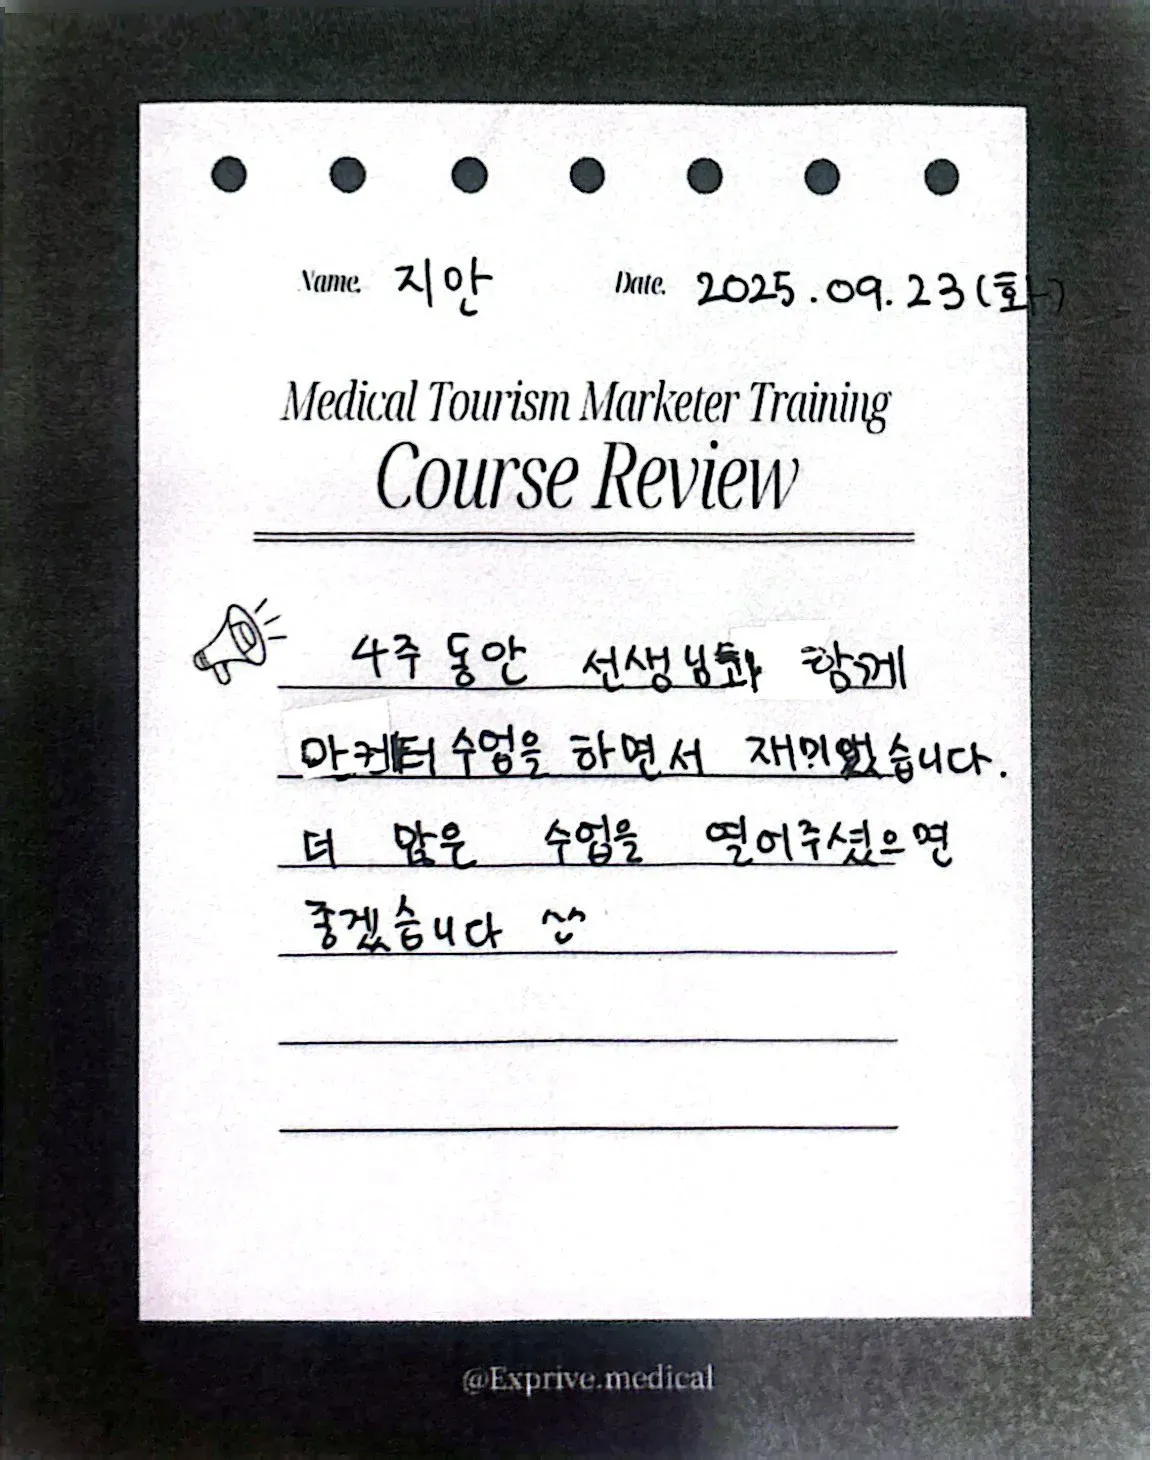 Name. 지안 Date. 2025.09.23(화)
Medical Tourism Marketer Training
Course Review
4주 동안 선생님과 함께
마케터 수업을 하면서 재미있었습니다.
더 많은 수업을 열어주셨으면
좋겠습니다 ^^
@Exprive.medical